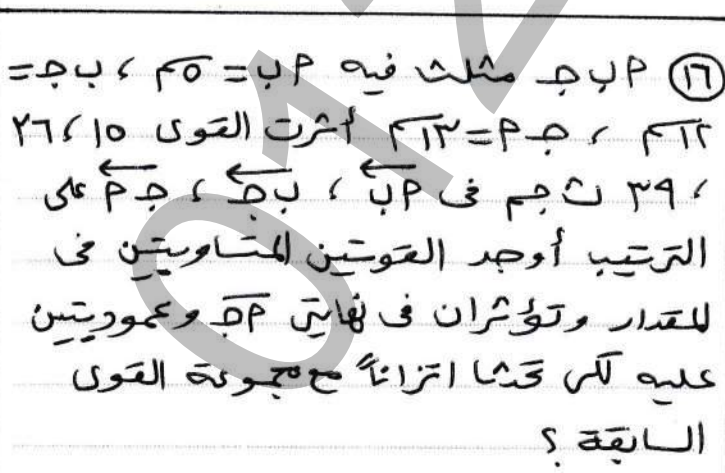 ١٦ ٢ ب ج مثلث فيه ٢ ب = ٥ سم ، ب ج =
١٢ سم ، ج ٢ = ١٣ سم أثرت القوى ١٥ ، ٢٦
، ٣٩ ث جم فى ٢ب ، ب ج ، ج ٢ على
الترتيب أوجد القوتين المتساويتين فى
المقدار وتؤثران فى نهايتى ٢ ج وعموديتين
عليه لكى تحدثا اتزاناً مع مجموعة القوى
السابقة ؟